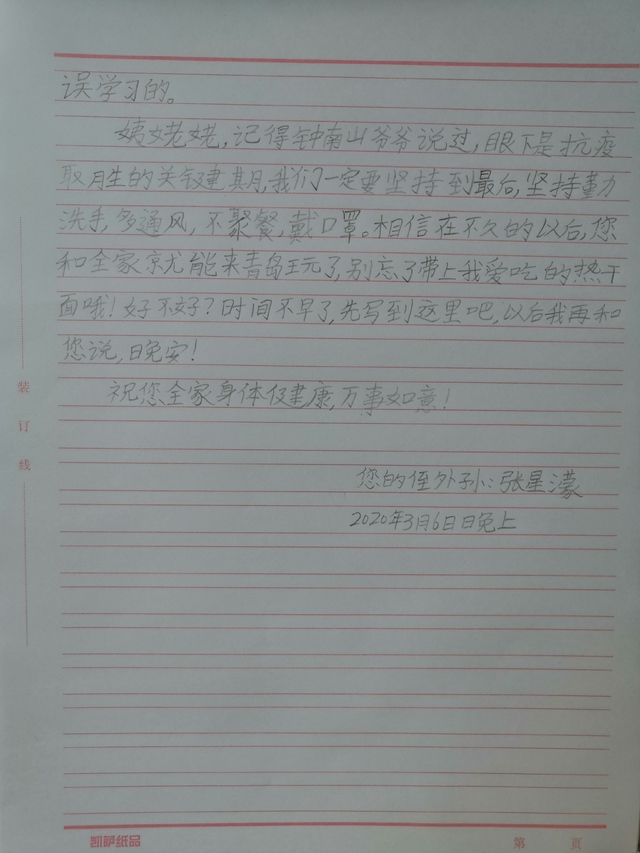 误学习的。
姨姥姥,记得钟南山爷爷说过,眼下是抗疫
取胜的关键期,我们一定要坚持到最后,坚持勤
洗手,多通风,不聚餐,戴口罩。相信在不久的以后,您
和全家就能来青岛玩了,别忘了带上我爱吃的热干
面哦!好不好?时间不早了,先写到这里吧,以后我再和
您说,晚安!
祝您全家身体健康,万事如意!
您的侄外孙:张星濛
2020年3月6日晚上
装
订
线
凯萨纸品
第 页